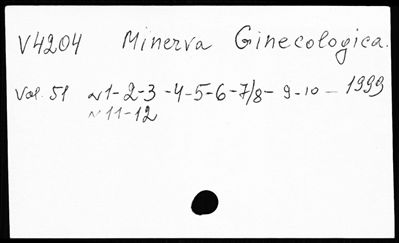 V4204 Minerva Ginecologica.
Vol. 51 N1-2-3-4-5-6-7/8-9-10-1999
N11-12